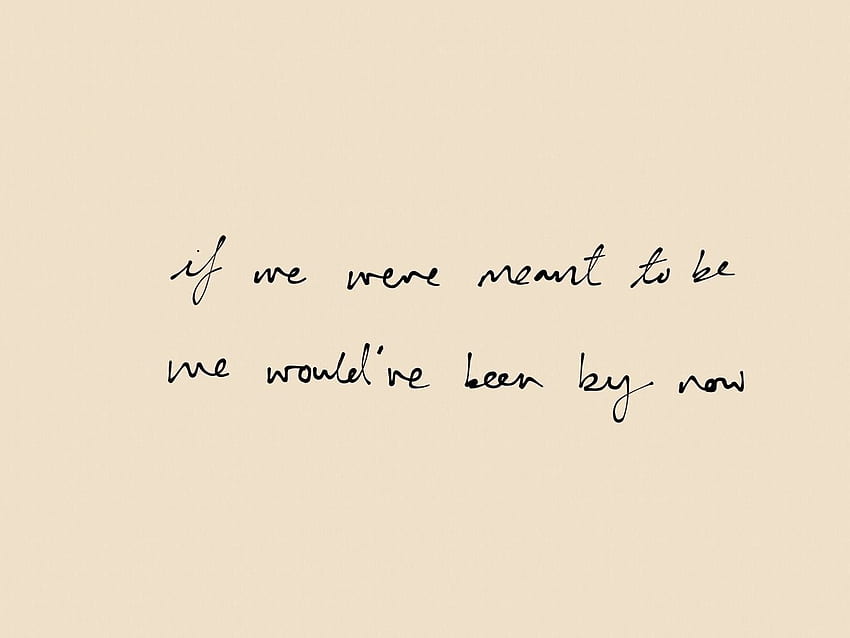 if we were meant to be
we would've been by now